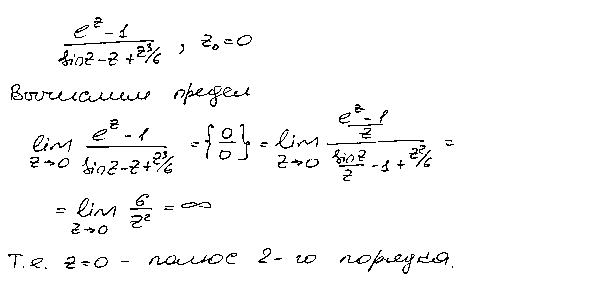 (e^z - 1)/(sin z - z + z^3/6) , z₀ = 0
Вычислим предел
lim z→0 (e^z - 1)/(sin z - z + z^3/6) = {0/0} = lim z→0 ((e^z - 1)/z)/((sin z)/z - 1 + z^2/6) =
= lim z→0 6/z^2 = ∞
Т.е. z=0 - полюс 2-го порядка.